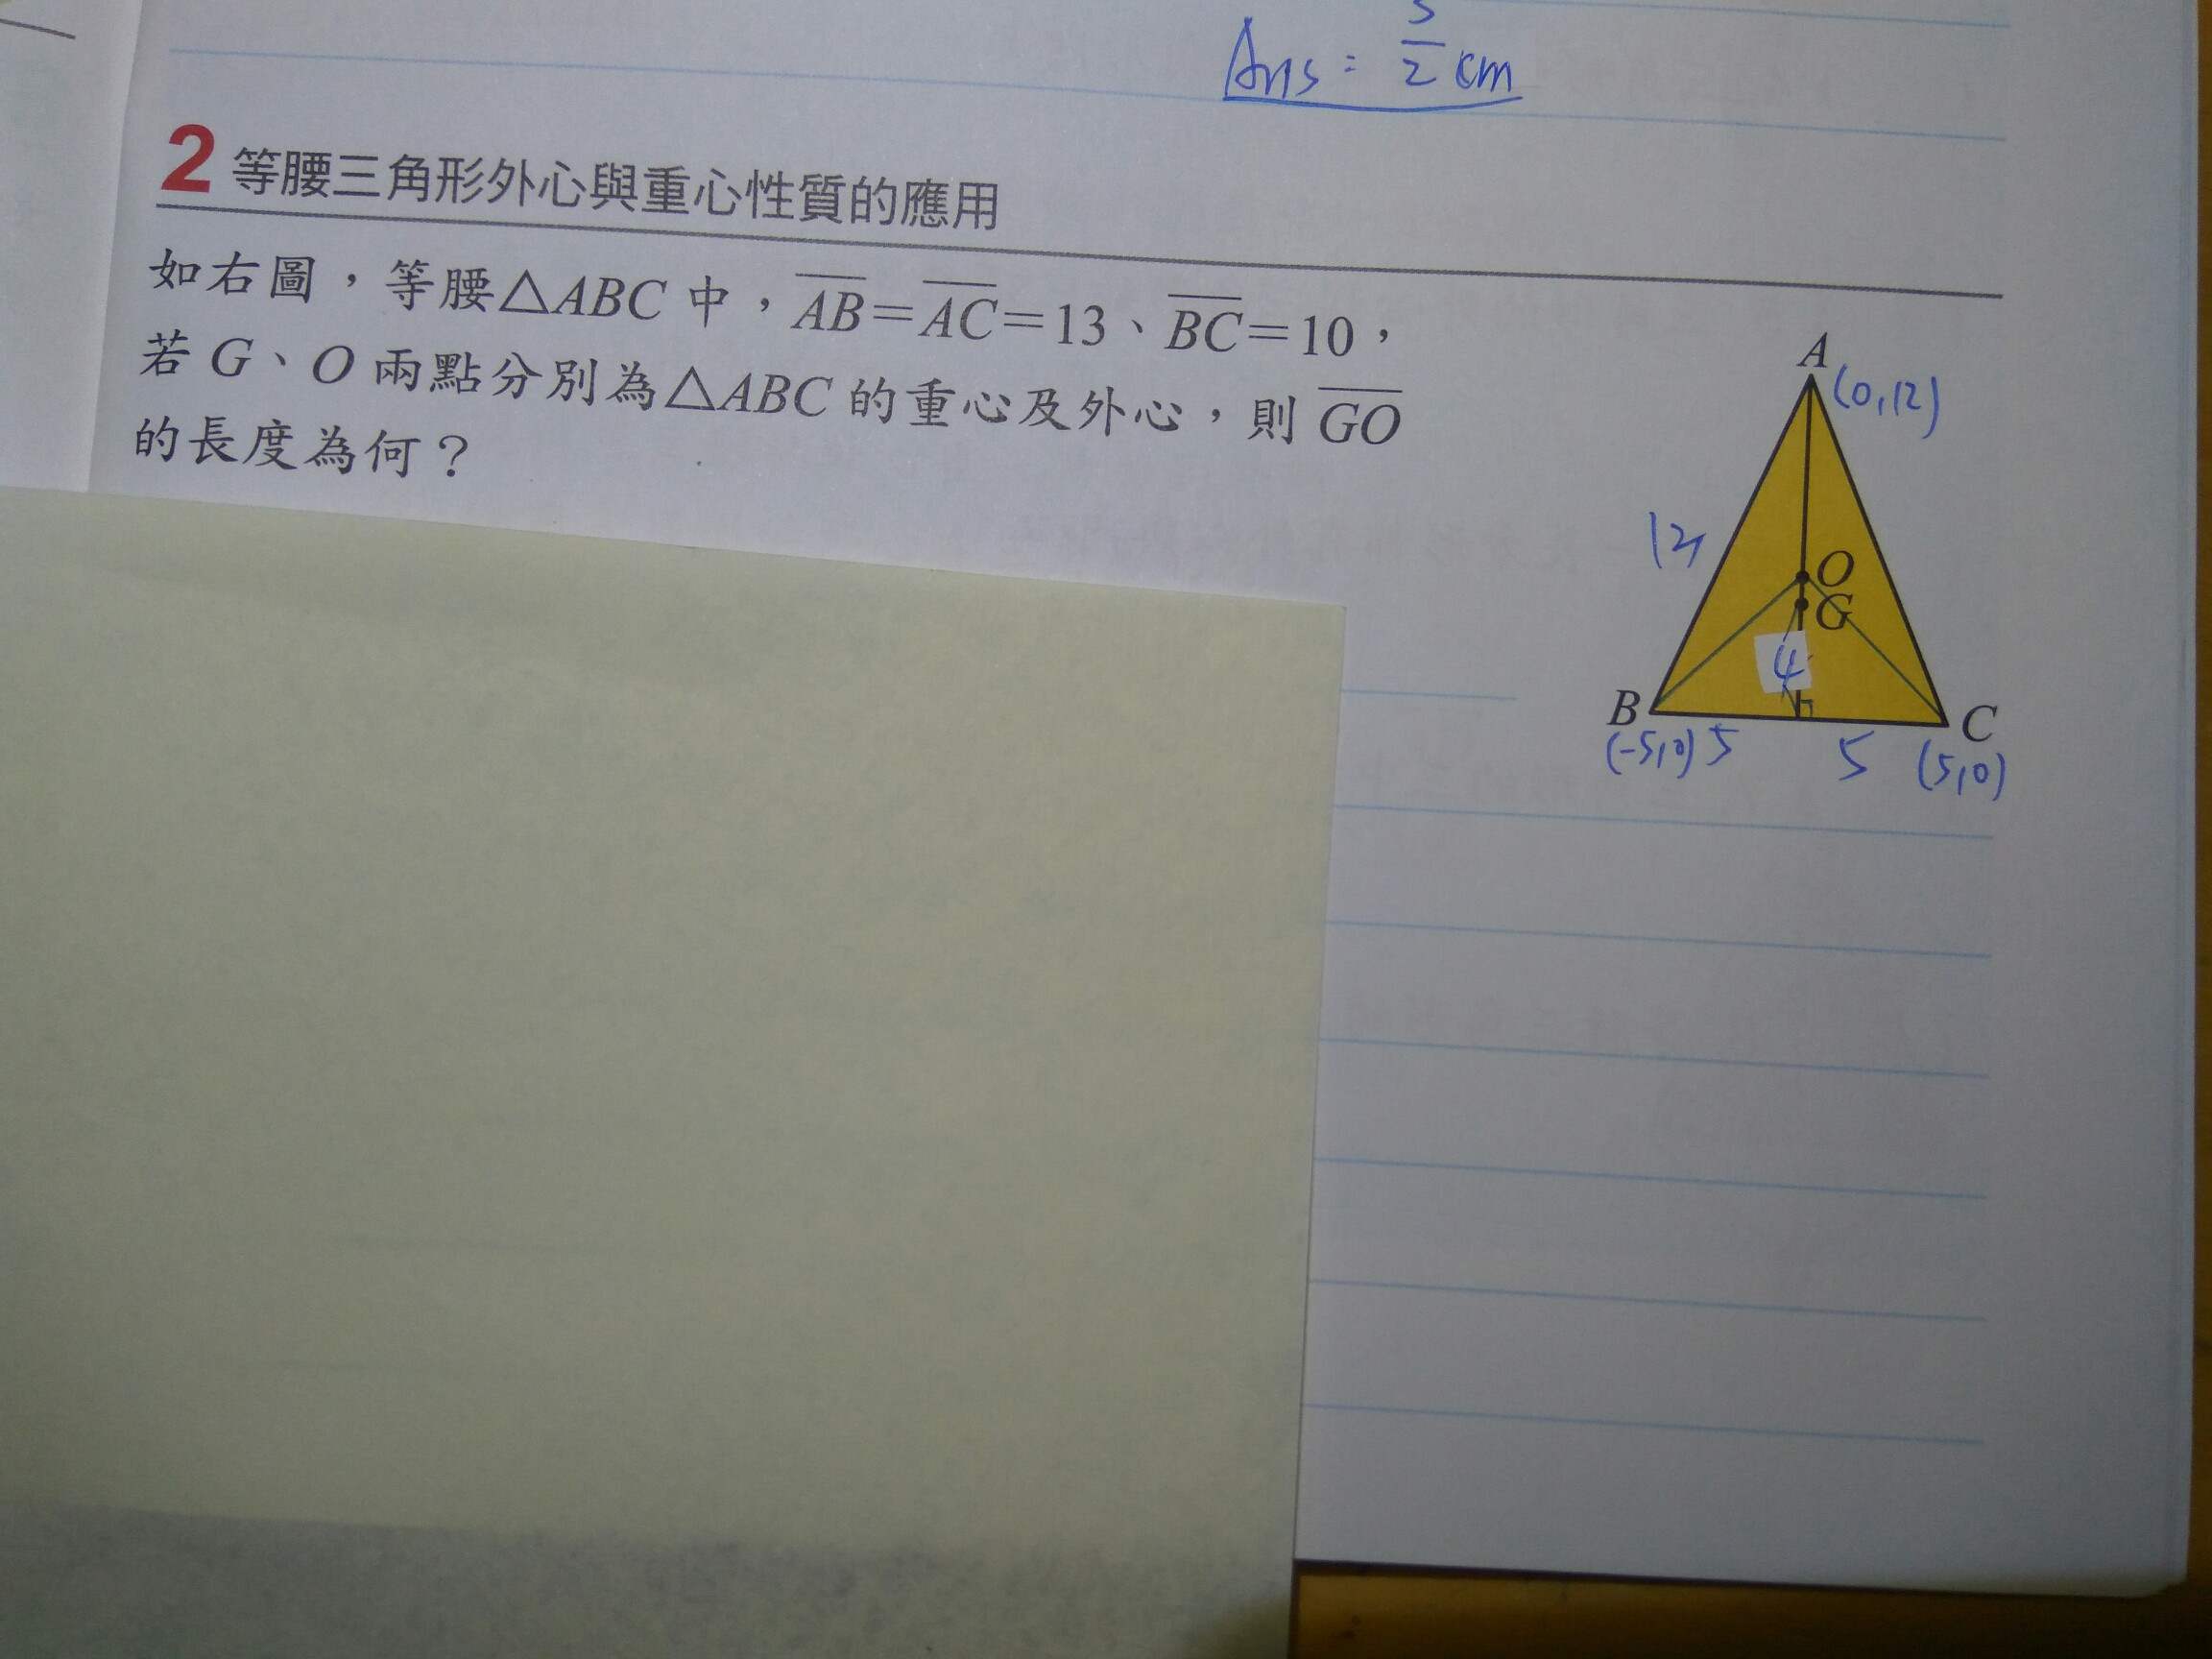 Ans = 5/2 cm
2 等腰三角形外心與重心性質的應用
如右圖，等腰△ABC中，AB=AC=13、BC=10，
若G、O兩點分別為△ABC的重心及外心，則GO
的長度為何？
A
(0,12)
12
O
G
4
B
C
(-5,0) 5
5
(5,0)